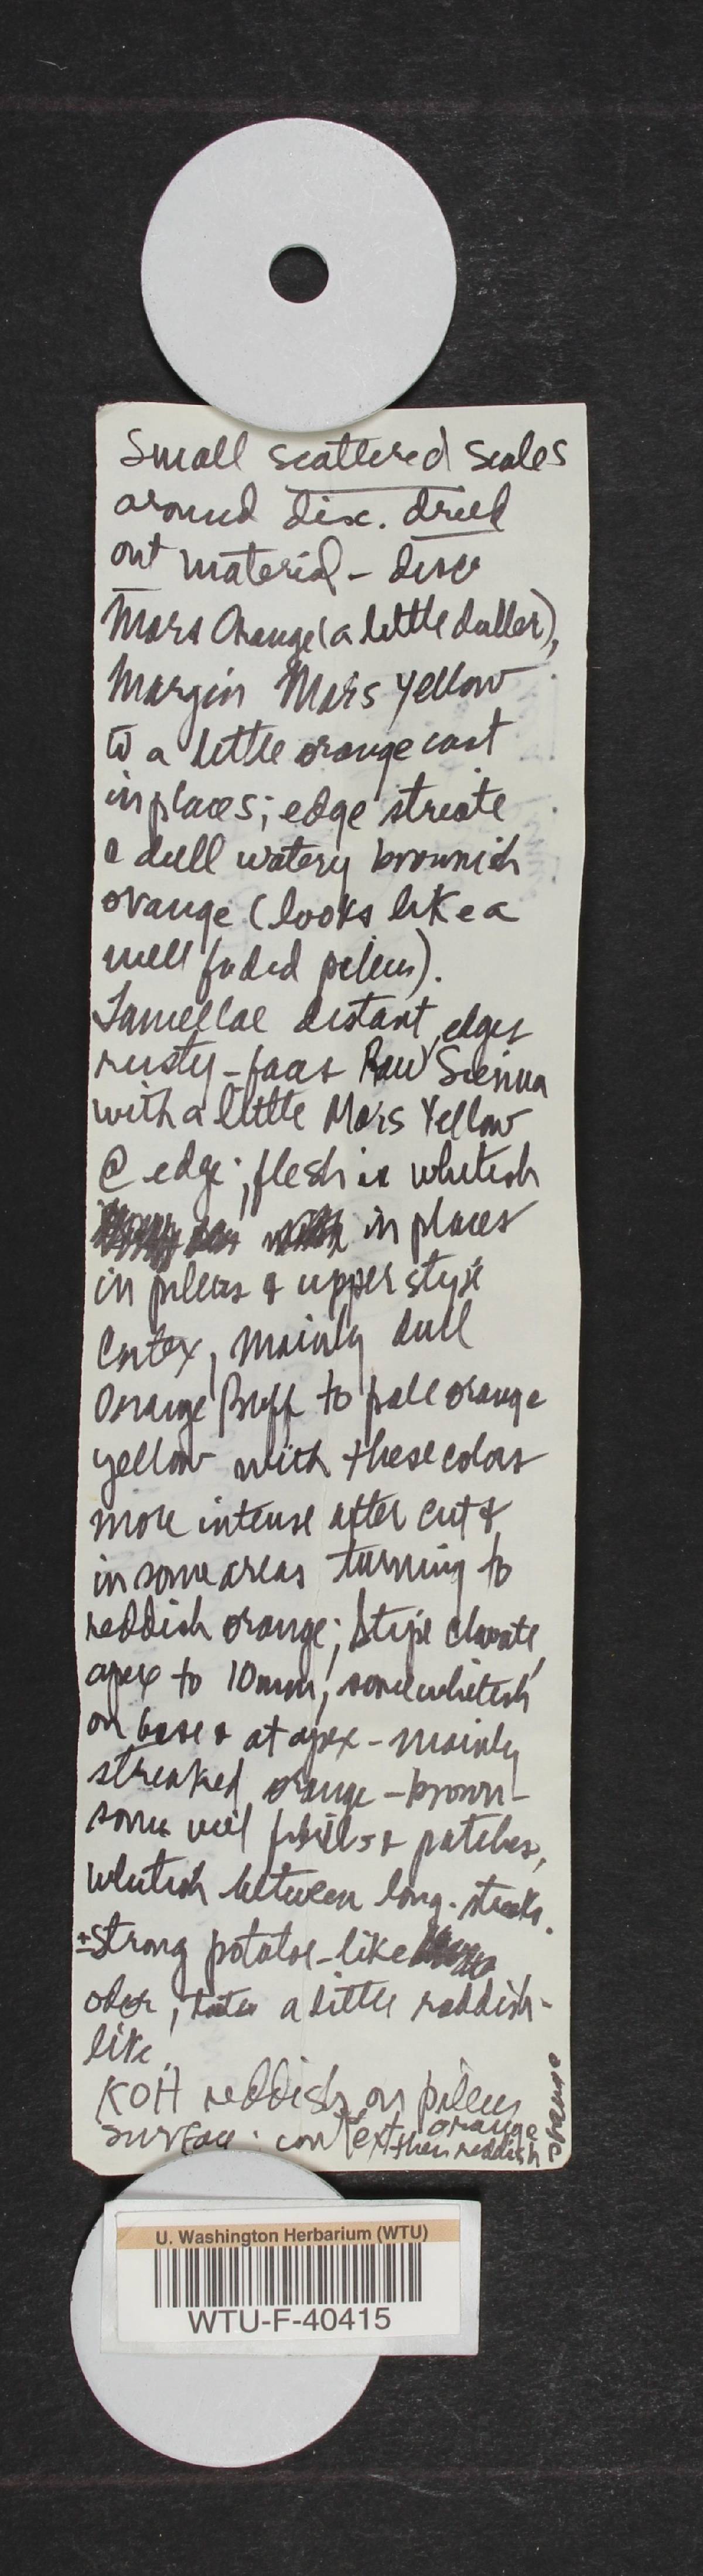 Small scattered scales
around disc. dried
out material - disc
Mars Orange (a little duller),
Margin Mars Yellow
to a little orange cast
in places; edge striate
c dull watery brownish
orange (looks like a
well faded pileus).
Lamellae distant, edges
rusty - faces Raw Sienna
with a little Mars Yellow
@ edge; flesh is whitish
in places
in pileus & upper stipe
Cortex, mainly dull
Orange Buff to pale orange
yellow with these colors
more intense after cut &
in some areas turning to
reddish orange; Stipe clavate,
apex to 10mm, some whitish
on base & at apex - mainly
streaked orange-brown -
some veil fibrils & patches,
whitish between long. streaks.
± Strong potatoe-like
odor, taste a little raddish-
like.
KOH reddish on pileus
surface. context orange
then reddish
orange
U. Washington Herbarium (WTU)
WTU-F-40415